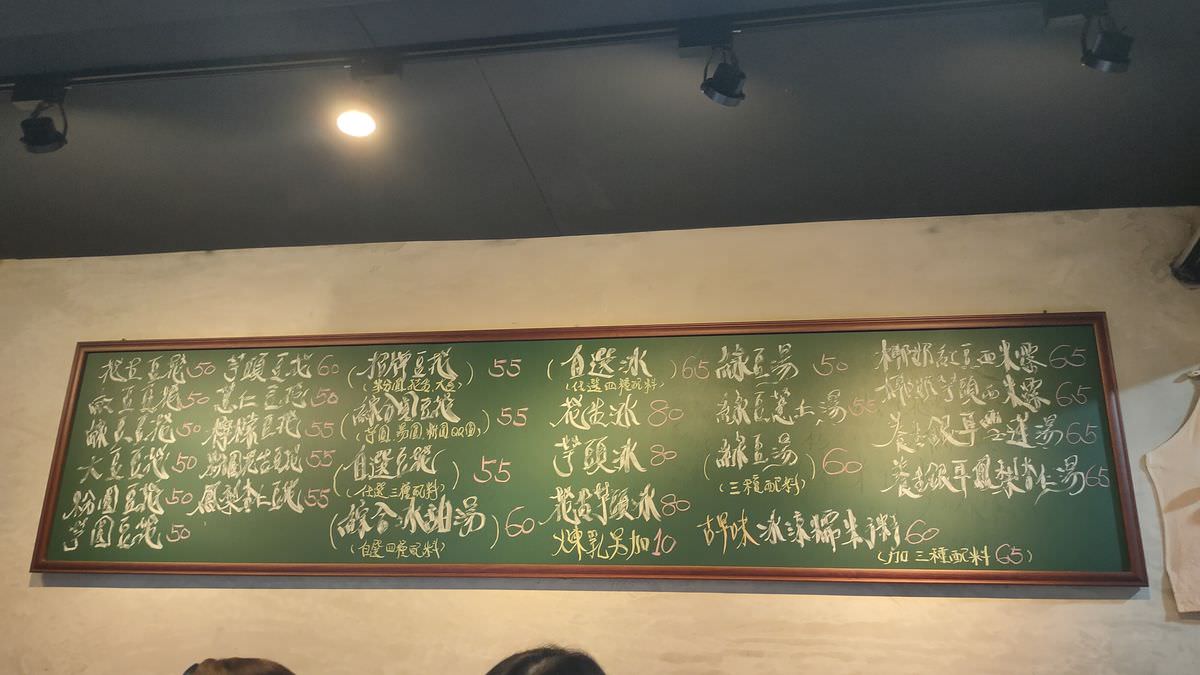 花生豆花 50
紅豆豆花 50
綠豆豆花 50
大豆豆花 50
粉圓豆花 50
芋圓豆花 50
芋頭豆花 60
薏仁豆花 50
檸檬豆花 55
粉圓花生豆花 55
鳳梨杏仁豆花 55
(招牌豆花) 55
(粉圓,花生,大豆)
(綜合圓豆花) 55
(芋圓,湯圓,粉圓QQ圓)
(自選豆花) 55
(任選三種配料)
(綜合冰甜湯) 60
(自選四種配料)
(自選冰) 65
(任選四種配料)
花生冰 80
芋頭冰 80
花生芋頭冰 80
煉乳另加10
綠豆湯 50
綠豆薏仁湯 55
(綠豆湯) 60
(三種配料)
古早味冰涼糯米粥 60
(加三種配料65)
椰奶紅豆西米露 65
椰奶芋頭西米露 65
養生銀耳雪蓮湯 65
養生銀耳鳳梨杏仁湯 65